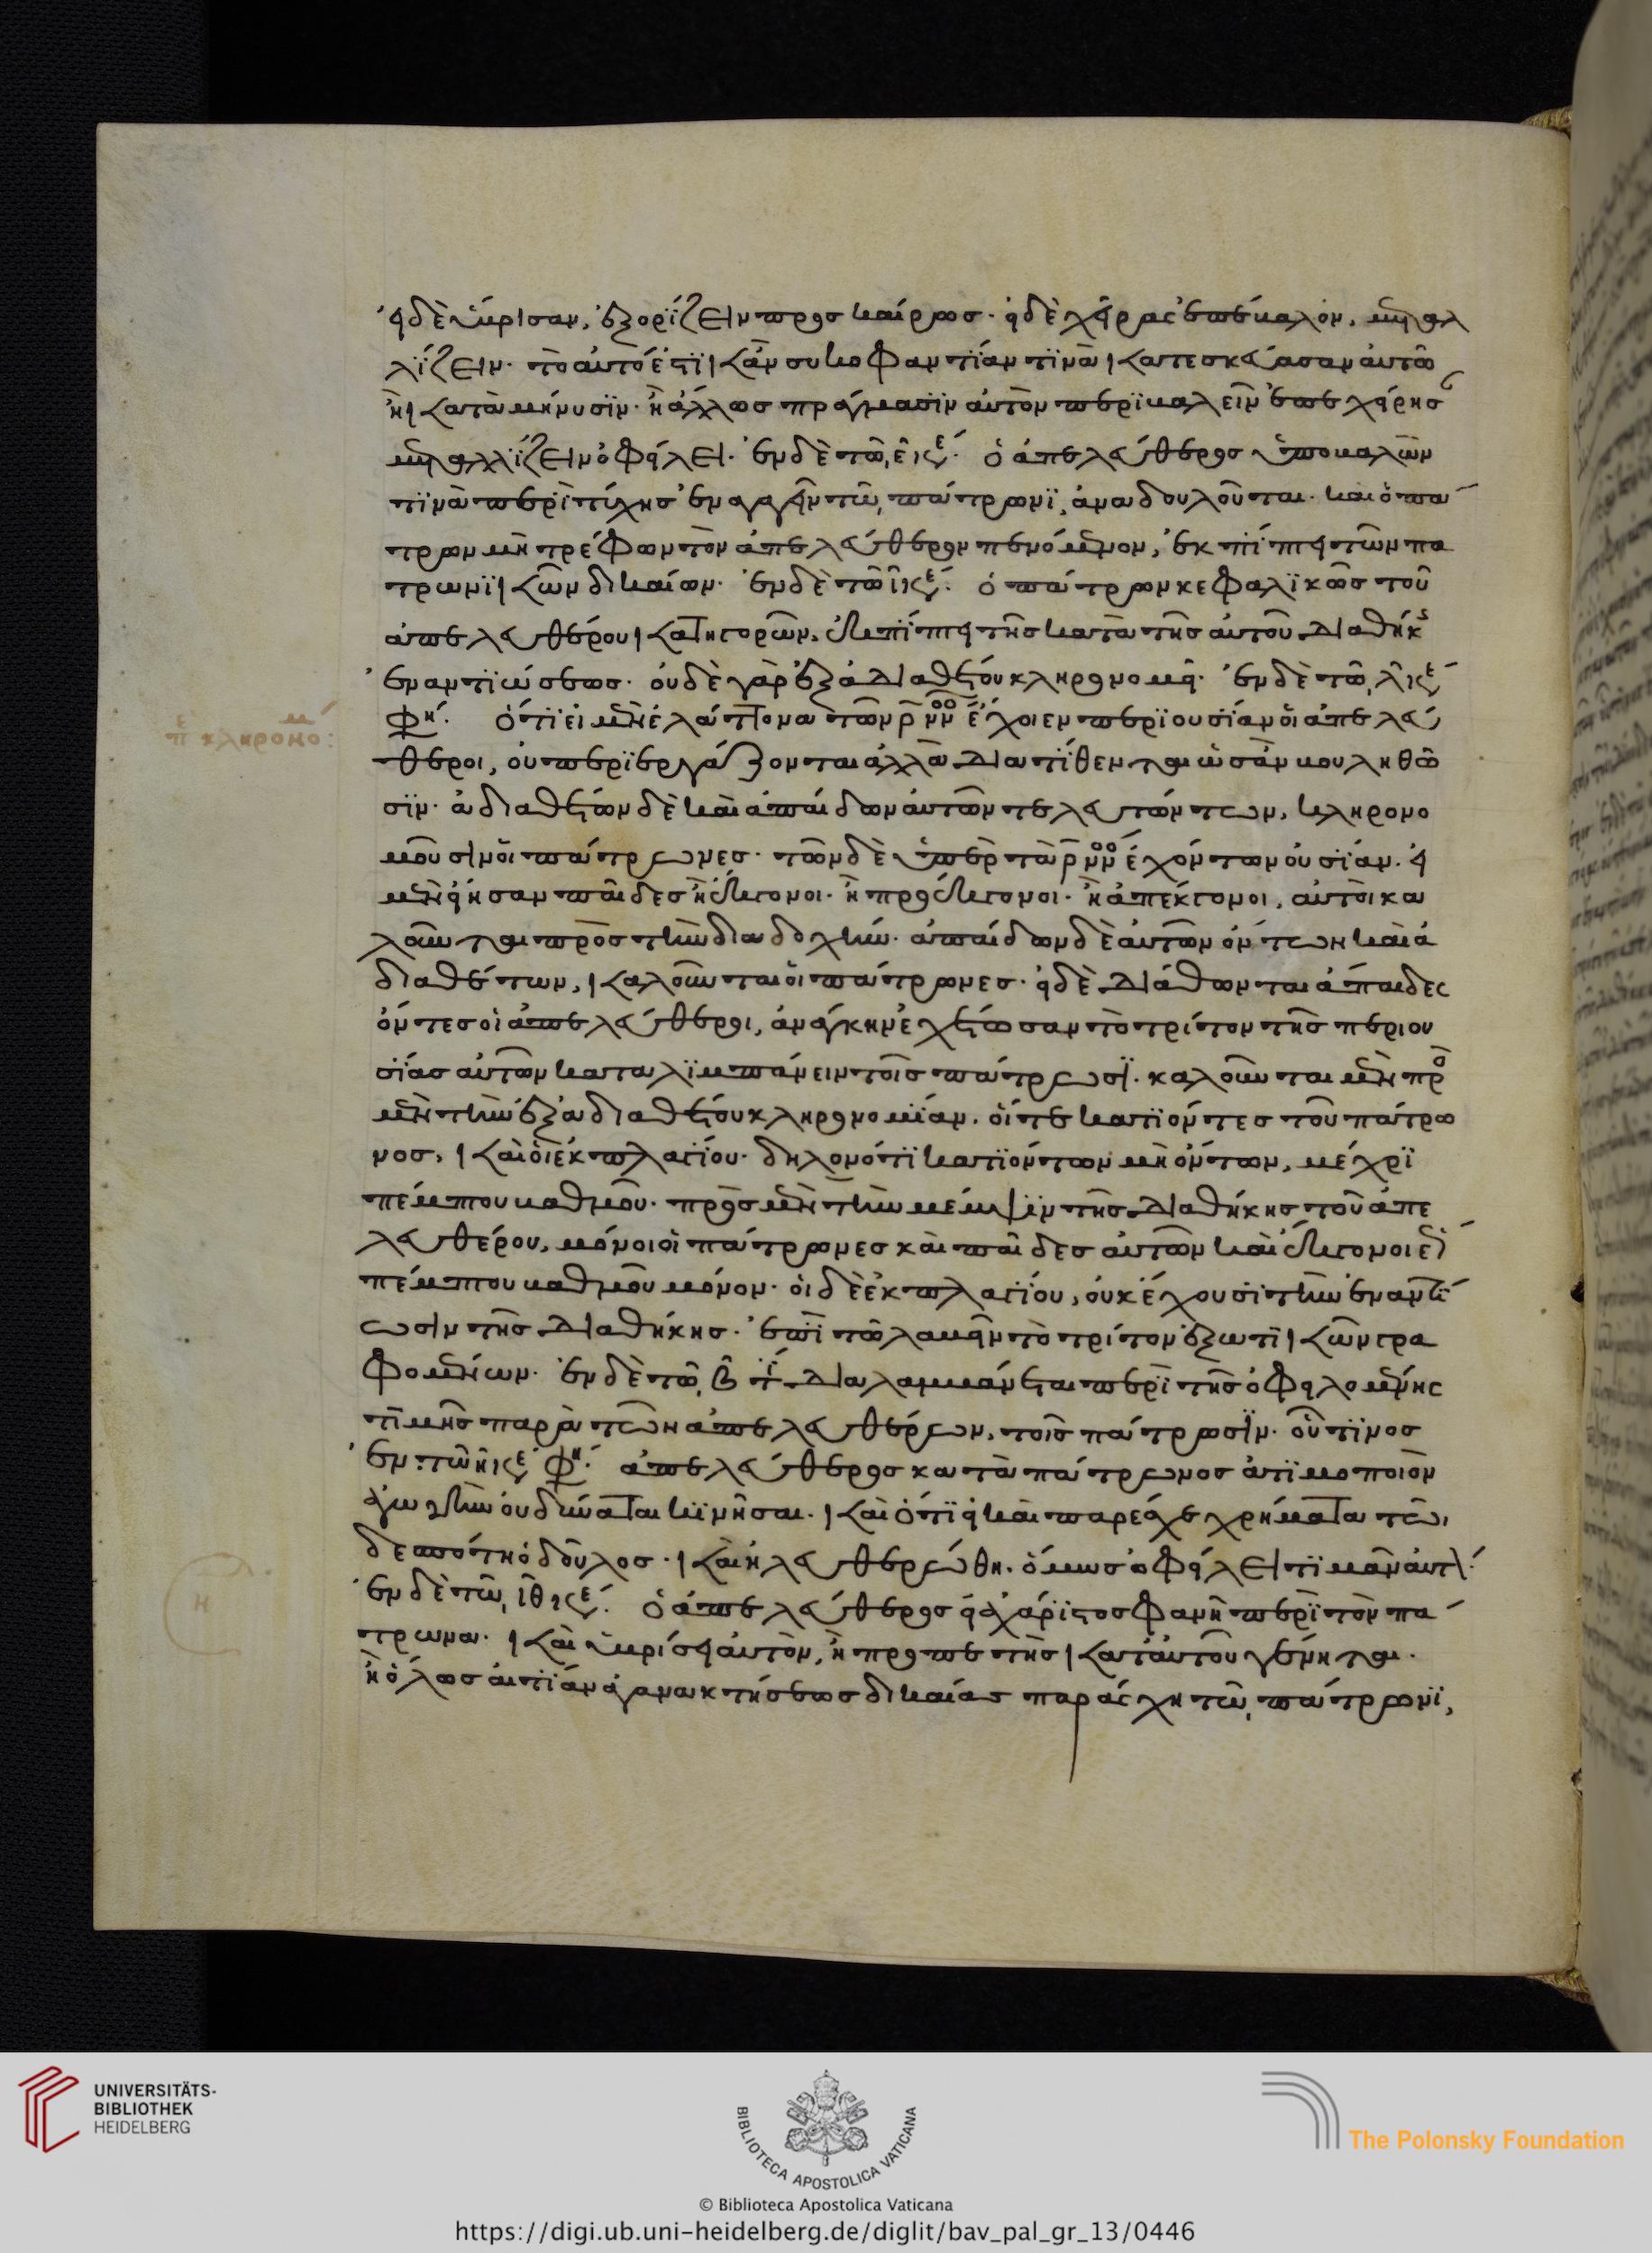 εἰ δὲ ὕβρισαν, ἐξορίζειν πρὸς καιρὸς. εἰ δὲ χεῖρας ἐπέβαλον,
τὸ αὐτό ἐστι κἂν συκοφαντίαν τινὰ κατεσκεύασαν αὐτῶ
ἢ κατὰ μήνυσιν. ἢ ἄλλως πράγμασιν αὐτὸν περιβαλεῖν
ὀφείλει. ἐν δὲ τῶ ὁ ἀπελεύθερος ὑποβαλὼν
τινὰ περὶ τύχης ἐναγαγεῖν τῶ πάτρωνι, ἀναδουλοῦται. καὶ ὁ πά
τρων μὴ τρέφων τὸν ἀπελεύθερον πενόμενον, ἐκπίπτει τῶν πα
τρωνικῶν δικαίων. ἐν δὲ τῶ ὁ πάτρων κεφαλικῶς τοῦ
ἀπελευθέρου κατηγορῶν, ἐκπίπτει τῆς κατὰ τῆς αὐτοῦ διαθήκης
ἐναντιώσεως. οὐδὲ γὰρ ἐξ ἀδιαθέτου κληρονομεῖ. ἐν δὲ τῶ
ὅτι εἰ μὲν ἐλάττονα τῶν ρ νν ἔχοιεν περιουσίαν οἱ ἀπελεύ
θεροι, οὐ περιεργάζονται ἀλλὰ διατίθενται ὡς ἂν βουληθῶ
σιν. ἀδιαθέτων δὲ καὶ ἀπαίδων αὐτῶν τελευτώντων, κληρονο
μοῦσιν οἱ πάτρωνες. τῶν δὲ ὑπὲρ τὰ ρ νν ἐχόντων οὐσίαν. εἰ
μὲν εἴησαν παῖδες ἢ ἔκγονοι. ἢ προέκγονοι. ἢ ἀπέκγονοι, αὐτοὶ κα
λοῦνται πρὸς τὴν διαδοχήν. ἀπαίδων δὲ αὐτῶν ὄντων καὶ ἀ
διαθέτων, καλοῦνται οἱ πάτρωνες. εἰ δὲ διάθωνται ἄπαιδες
ὄντες οἱ ἀπελεύθεροι, ἀνάγκην ἐχέτωσαν τὸ τρίτον τῆς περιου
σίας αὐτῶν καταλιμπάνειν τοῖς πάτρωσι. καλοῦνται μὲν πρὸ
μὲν τὴν ἐξ ἀδιαθέτου κληρονομίαν. οἵ τε κατιόντες τοῦ πάτρω
νος, καὶ οἱ ἐκ πλαγίου. δηλονότι κατιόντων μὴ ὄντων, μέχρι
πέμπτου βαθμοῦ. πρὸς μὲν τὴν μέμψιν τῆς διαθήκης τοῦ ἀπε
λευθέρου, μόνοι οἱ πάτρωνες καὶ παῖδες αὐτῶν καὶ ἔκγονοι
πέμπτου βαθμοῦ μόνον. οἱ δὲ ἐκ πλαγίου, οὐκ ἔχουσι τὴν ἐναντί
ωσιν τῆς διαθήκης. ἐπὶ τῶ λαβεῖν τὸ τρίτον ἐξωτικῶν γρα
φομένων. ἐν δὲ τῶ διαλαμβάνεται περὶ τῆς ὀφειλομένης
τιμῆς παρὰ τῶν ἀπελευθέρων, τοῖς πάτρωσιν. οὗτινος
ἐν τῶ ἀπελεύθερος κατὰ πάτρωνος ἀτιμοποιὸν
ἀγωγὴν οὐ δύναται κινῆσαι. καὶ ὅτι εἰ καὶ παρέσχε χρήματα τῶ
δεσπότη ὁ δοῦλος. καὶ ἠλευθερώθη. ὅμως ὀφείλει τιμᾶν αὐτ
ἐν δὲ τῶ ὁ ἀπελεύθερος εἰ ἀχάριστος φανῆ περὶ τὸν πά
τρωνα. καὶ ὑβρίσει αὐτὸν, ἢ προπετὴς κατ' αὐτοῦ γένηται.
ἢ ὅλως αἰτίαν ἀγανακτήσεως δικαίας παράσχη τῶ πάτρωνι,
UNIVERSITÄTS-
BIBLIOTHEK
HEIDELBERG
BIBLIOTECA APOSTOLICA VATICANA
The Polonsky Foundation
© Biblioteca Apostolica Vaticana
https://digi.ub.uni-heidelberg.de/diglit/bav_pal_gr_13/0446